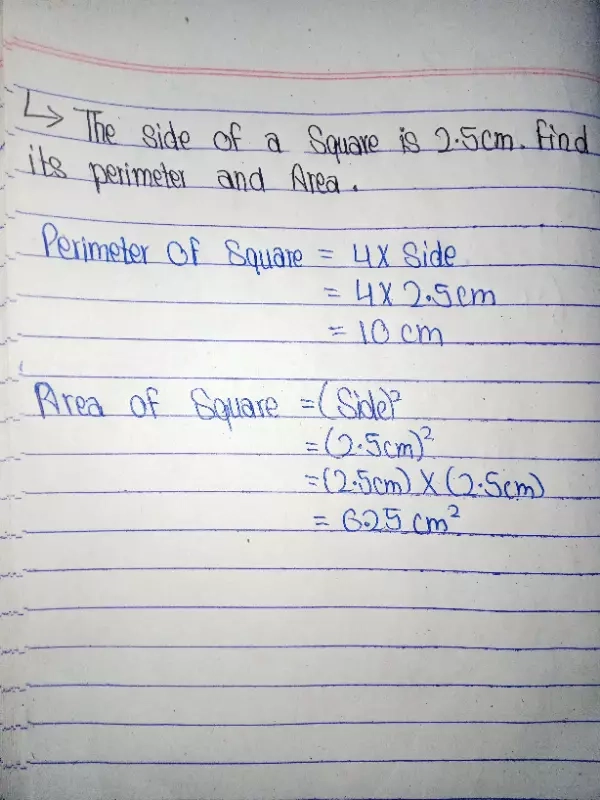 ↳ The side of a Square is 2.5cm. find
its perimeter and Area.
Perimeter Of Square = 4X Side
= 4X 2.5cm
= 10 cm
Area of Square =(Side)²
=(2.5cm)²
=(2.5cm) X (2.5cm)
= 625 cm²